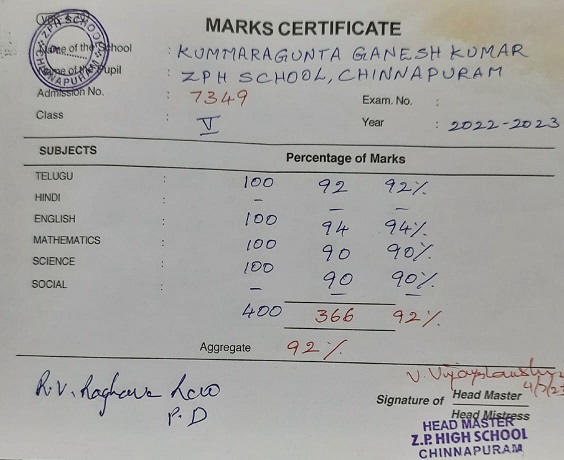 MARKS CERTIFICATE
Name of the School : KUMMARAGUNTA GANESH KUMAR
Name of the Pupil : ZPH SCHOOL, CHINNAPURAM
Admission No. : 7349 Exam. No. :
Class : V Year : 2022-2023
SUBJECTS Percentage of Marks
TELUGU : 100 92 92%
HINDI : - - -
ENGLISH : 100 94 94%
MATHEMATICS : 100 90 90%
SCIENCE : 100 90 90%
SOCIAL : - - -
400 366 92%
Aggregate 92%
R.V. Raghava Rao
P.D
Signature of Head Master
Head Mistress
HEAD MASTER
Z.P. HIGH SCHOOL
CHINNAPURAM